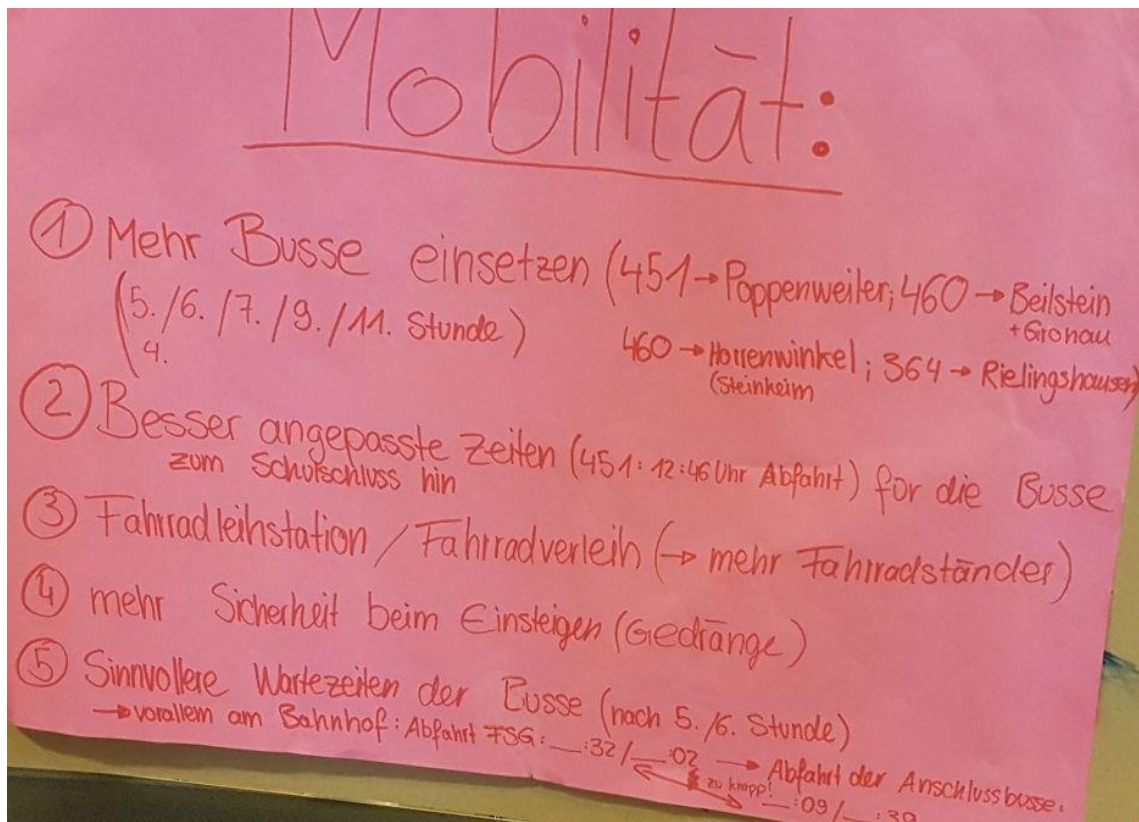 Mobilität:
① Mehr Busse einsetzen (451→Poppenweiler; 460→Beilstein
+Gronau
(5./6./7./9./11. Stunde)
4.
460→Horrenwinkel; 364→Rielingshausen)
(Steinheim
② Besser angepasste Zeiten (451: 12:46 Uhr Abfahrt) für die Busse
zum Schulschluss hin
③ Fahrradleihstation / Fahrradverleih (→ mehr Fahrradständer)
④ mehr Sicherheit beim Einsteigen (Gedränge)
⑤ Sinnvollere Wartezeiten der Busse (nach 5./6. Stunde)
→ vorallem am Bahnhof: Abfahrt FSG: __:32/__:02 → Abfahrt der Anschlussbusse:
zu knapp! __:09/__:39